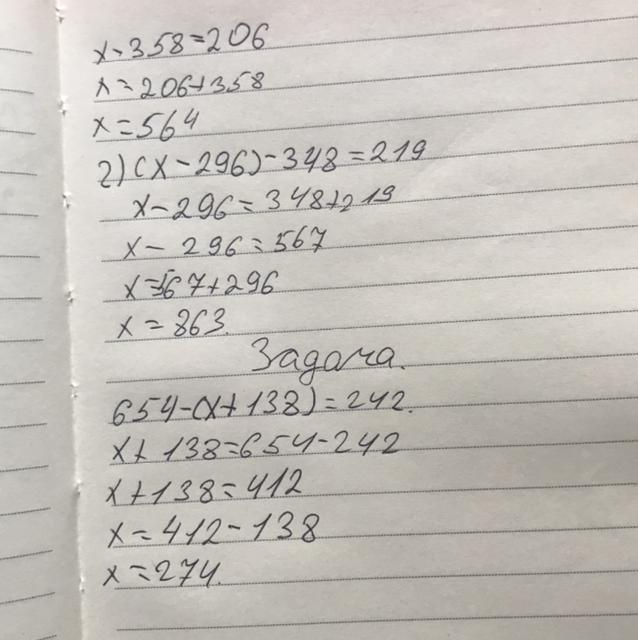 x-358=206
x=206+358
x=564
2)(x-296)-348=219
x-296=348+219
x-296=567
x=567+296
x=863.
Задача.
654-(x+138)=242.
x+138=654-242
x+138=412
x=412-138
x=274.